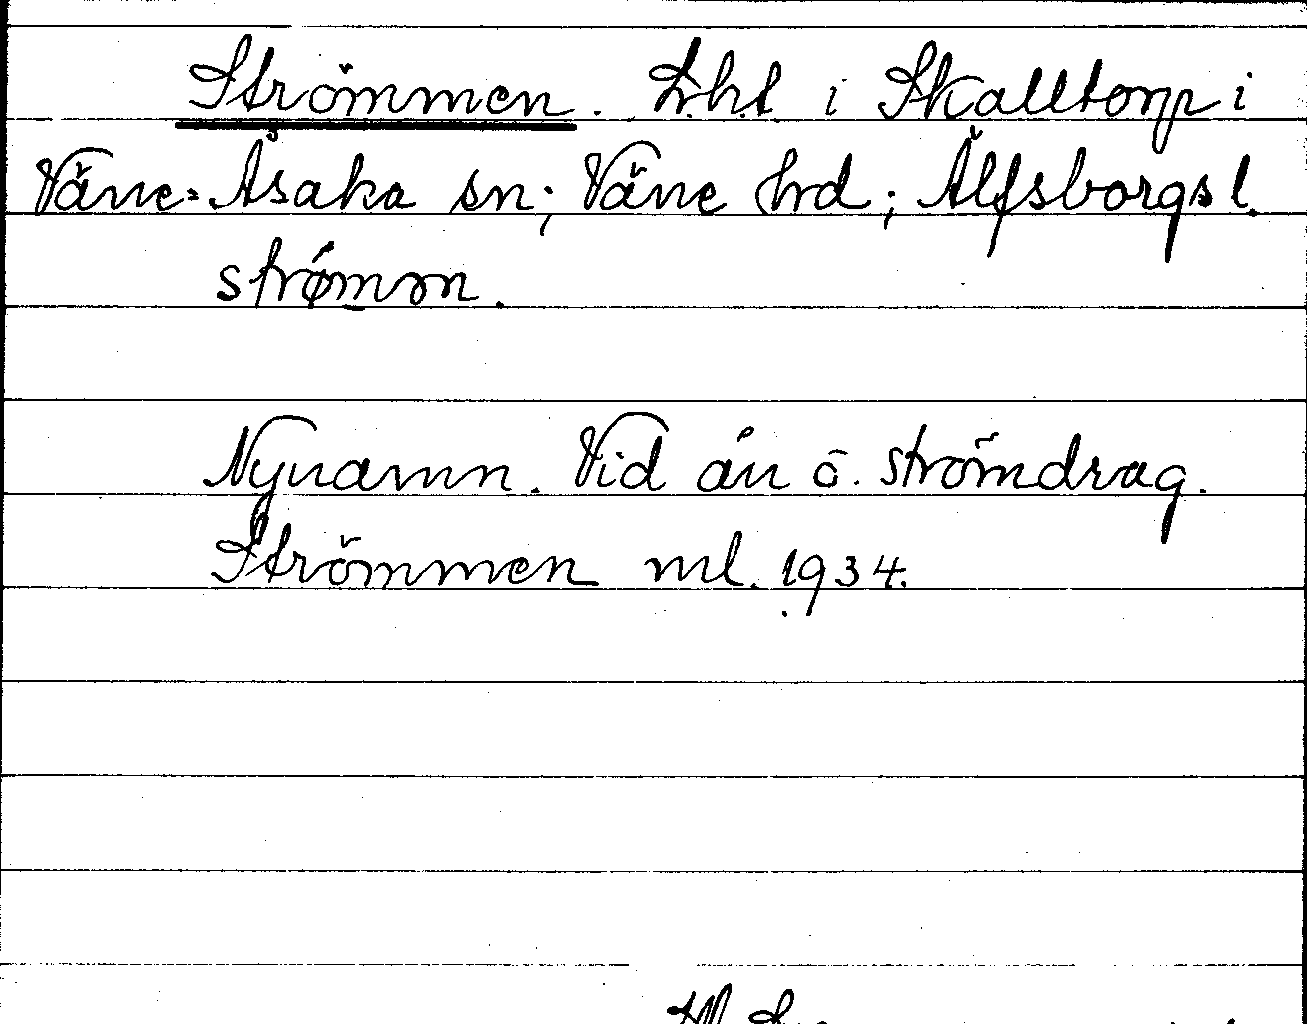 Strömmen. Lht i Skalltorp i
Väne-Åsaka sn; Väne hd; Älfsborgs l.
strø̀mən.
Nynamn. Vid ån o. strömdrag.
Strömmen ml. 1934.